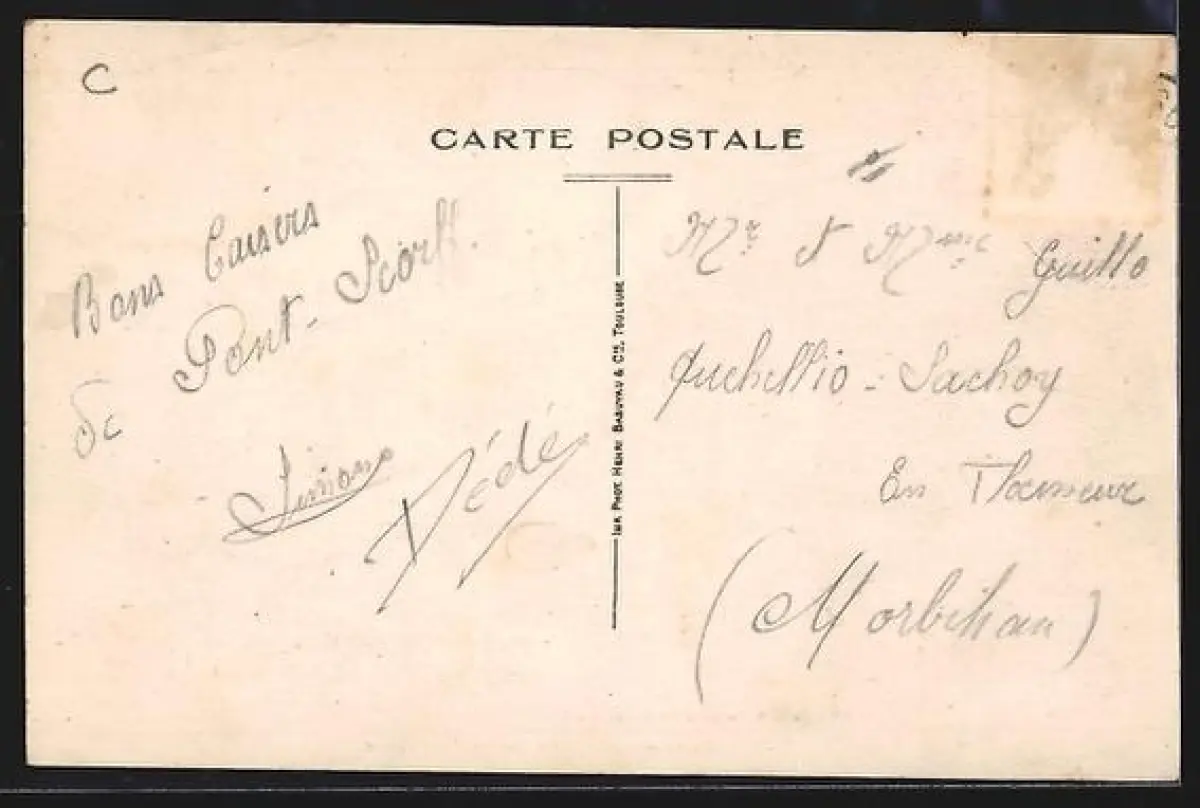 C
CARTE POSTALE
Bons Baisers
de Pont-Scorff.
Simone
Dédé
IMP. PHOT. HENRI BASUYAU & Cie, TOULOUSE
Mr & Mme Guillo
Quehellio - Lachoy
En Ploemeur
(Morbihan)